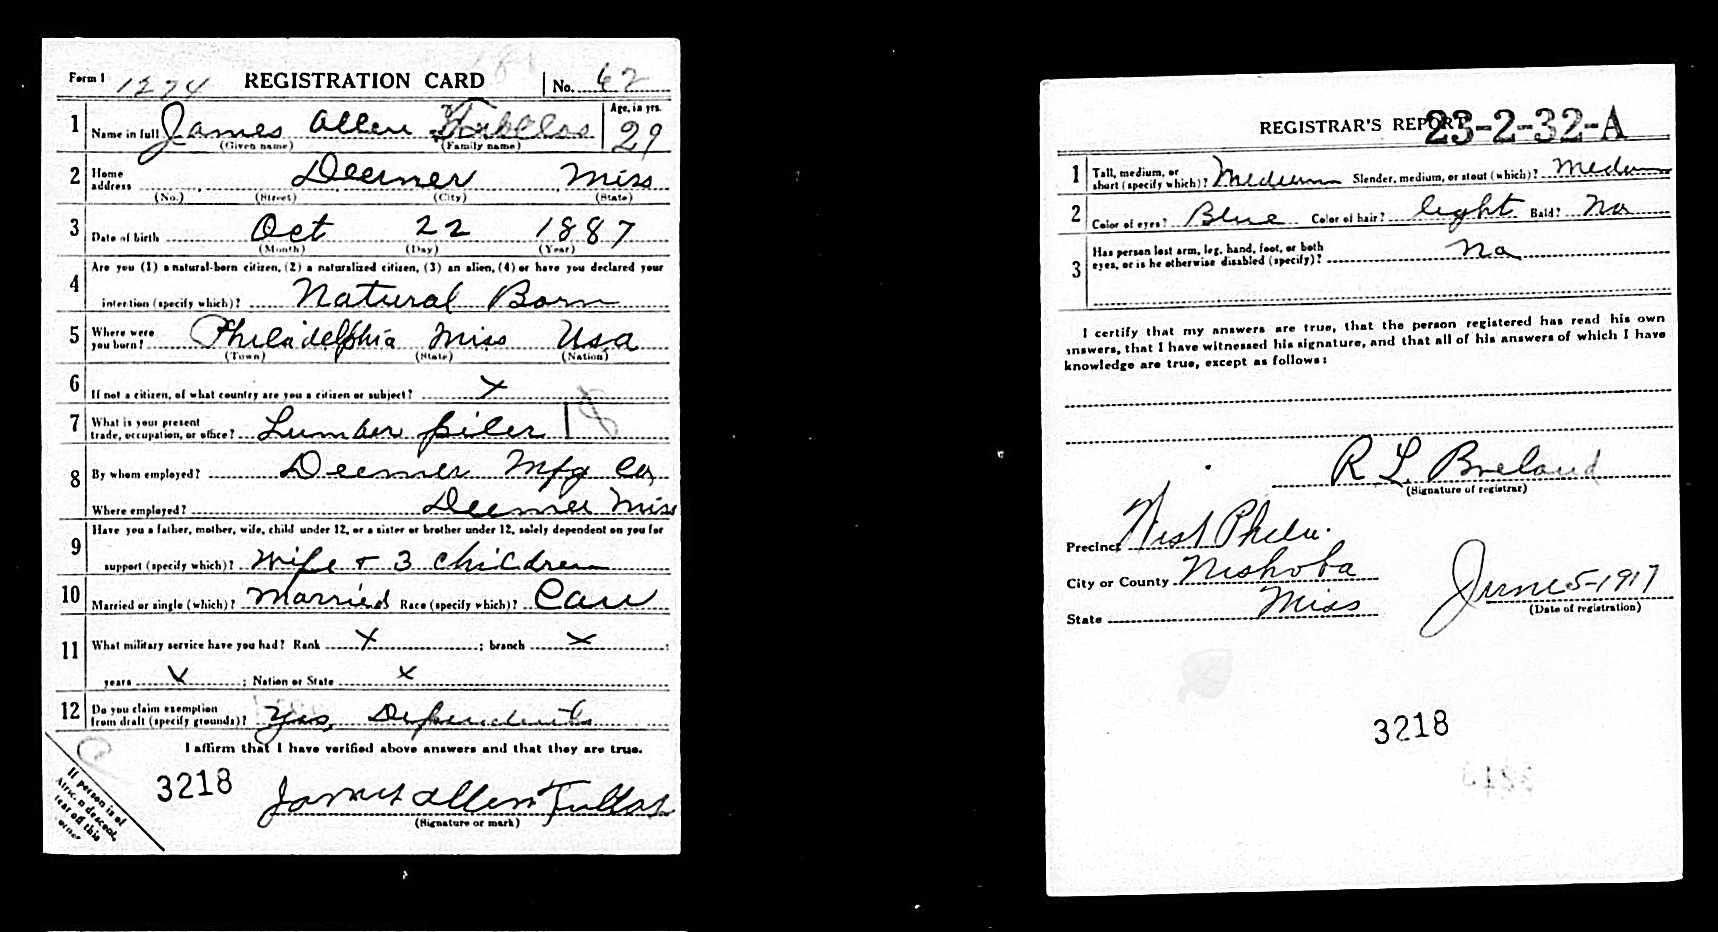 Form 1 1274 REGISTRATION CARD No. 62
1 Name in full James Allen Age, in yrs. 29
(Given name) (Family name)
2 Home address Deemer Miss
(No.) (Street) (City) (State)
3 Date of birth Oct 22 1887
(Month) (Day) (Year)
4 Are you (1) a natural-born citizen, (2) a naturalized citizen, (3) an alien, (4) or have you declared your
intention (specify which)? Natural Born
5 Where were you born? Philadelphia Miss Usa
(Town) (State) (Nation)
6 If not a citizen, of what country are you a citizen or subject? X
7 What is your present trade, occupation, or office? Lumber piler 18
8 By whom employed? Deemer Mfg Co,
Where employed? Deemer Miss
9 Have you a father, mother, wife, child under 12, or a sister or brother under 12, solely dependent on you for
support (specify which)? Wife + 3 children
10 Married or single (which)? Married Race (specify which)? Cau
11 What military service have you had? Rank X ; branch X ;
years X ; Nation or State X
12 Do you claim exemption from draft (specify grounds)? Yes, Dependents
I affirm that I have verified above answers and that they are true.
3218 James Allen
(Signature or mark)
If person is of
African descent,
tear off this
corner
REGISTRAR'S REPORT 23-2-32-A
1 Tall, medium, or short (specify which)? Medium Slender, medium, or stout (which)? Medium
2 Color of eyes? Blue Color of hair? light Bald? No
3 Has person lost arm, leg, hand, foot, or both eyes, or is he otherwise disabled (specify)? No
I certify that my answers are true, that the person registered has read his own
answers, that I have witnessed his signature, and that all of his answers of which I have
knowledge are true, except as follows:
R L Breland
(Signature of registrar)
Precinct West Phila.
City or County Neshoba
State Miss
June 5-1917
(Date of registration)
3218